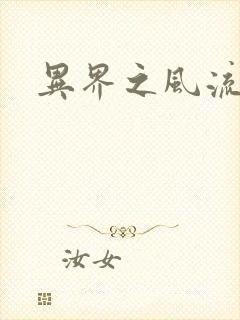 異界之風流
汝女